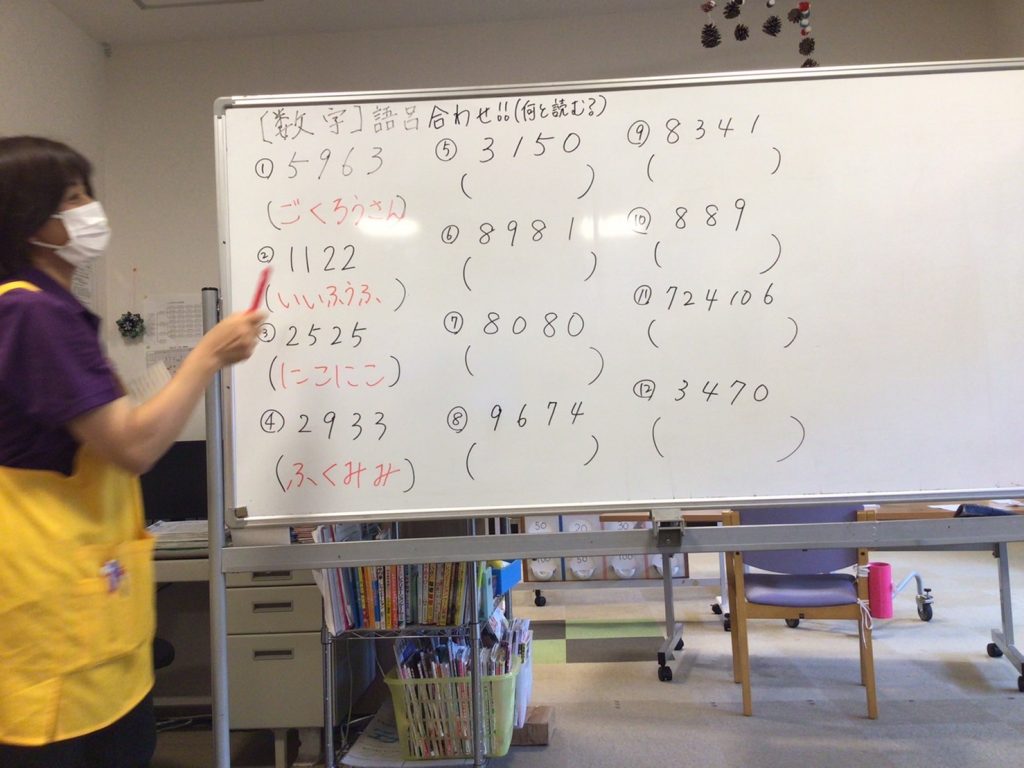 [数字]語呂合わせ!!(何と読む?)
① 5963
(ごくろうさん)
② 1122
(いいふうふ)
③ 2525
(にこにこ)
④ 2933
(ふくみみ)
⑤ 3150
( )
⑥ 8981
( )
⑦ 8080
( )
⑧ 9674
( )
⑨ 8341
( )
⑩ 889
( )
⑪ 724106
( )
⑫ 3470
( )
50 20 30
100 50 100